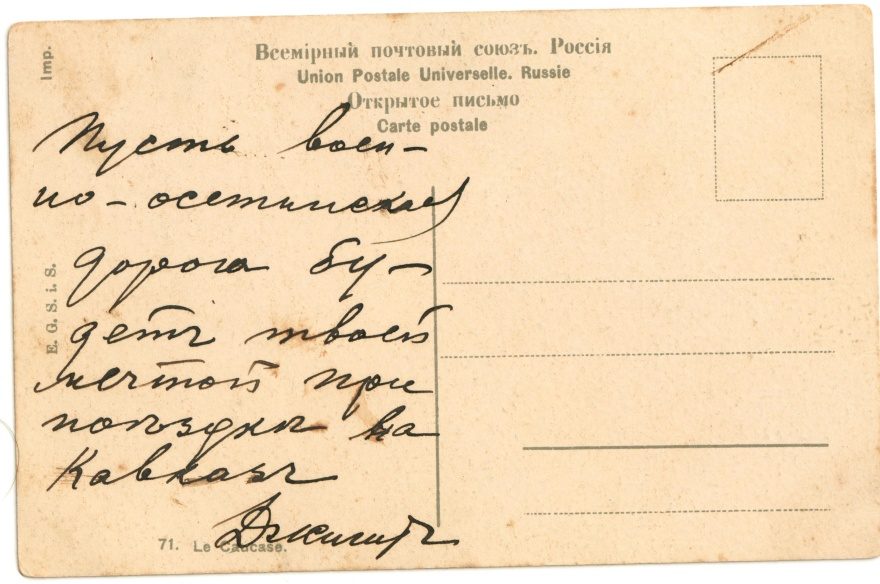 Imp.
Всемірный почтовый союзъ. Россія
Union Postale Universelle. Russie
Открытое письмо
Carte postale
Пусть воен-
но-осетинская
дорога бу-
детъ твоей
мечтой при
поѣздкѣ на
Кавказъ
Джигитъ
E. G. S. i. S.
71. Le Caucase.